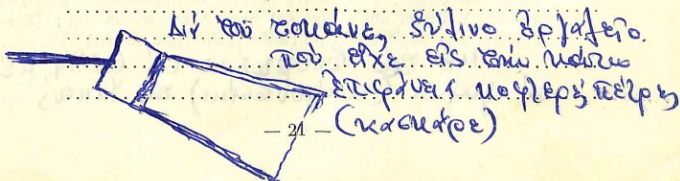 Διὰ τοῦ τσοκάνε, ξύλινο ἐργαλεῖο.
ποὺ εἶχε εἰς τὴν κάτω
ἐπιφάνεια κοφτερές πέτρες
— 21 —
(κασκάρε)